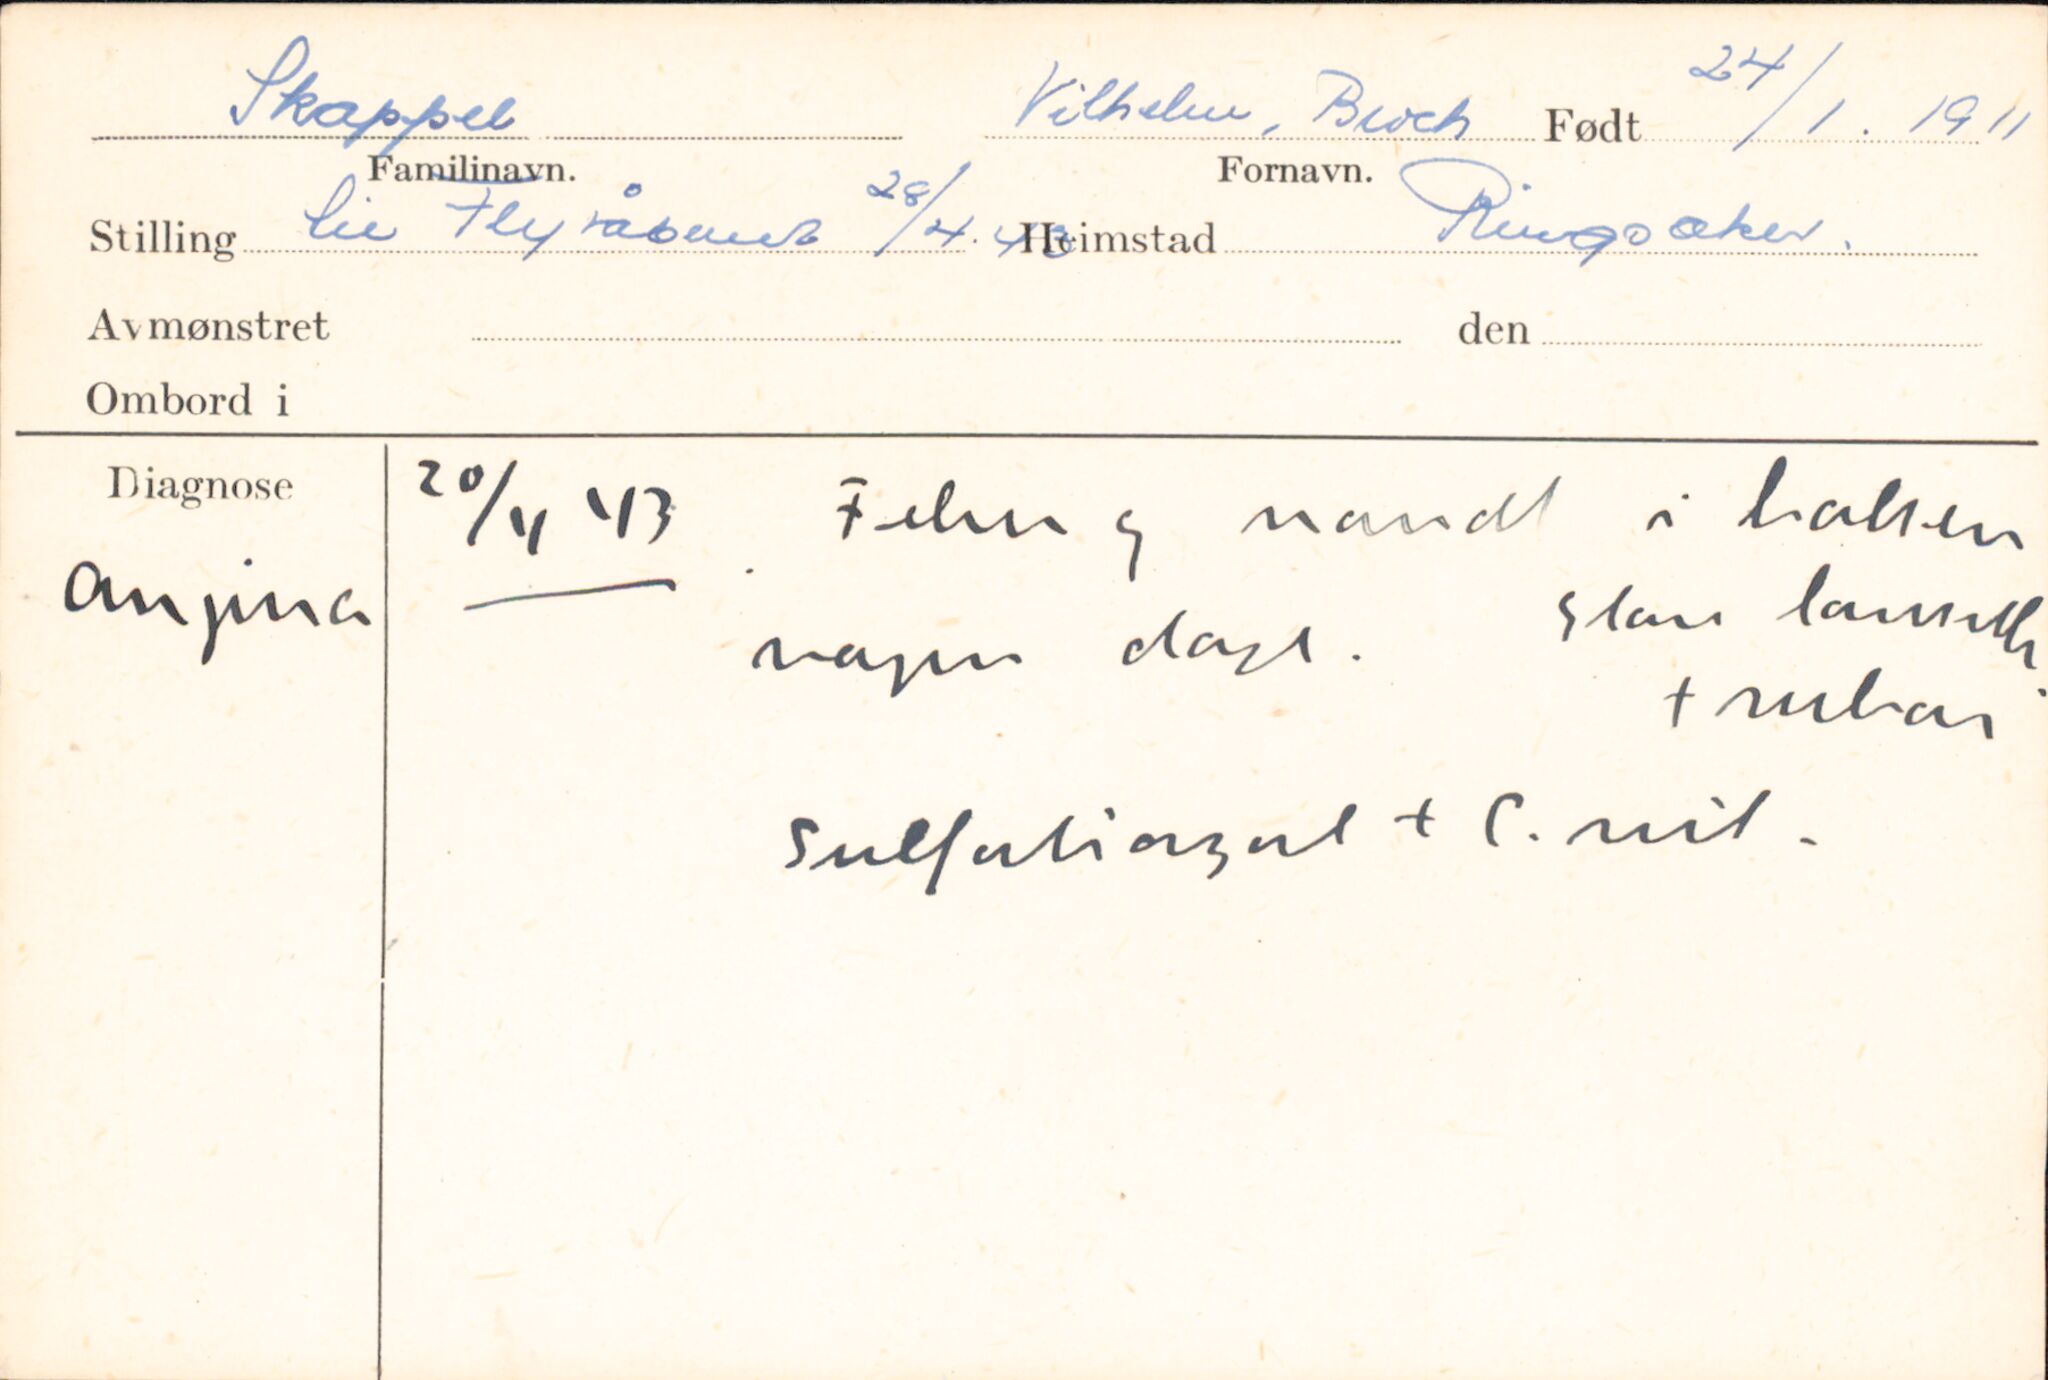 Skappel Vilhelm, Broch Født 24/1. 1911
Familinavn. Fornavn.
Stilling Siv Flyvåbnet 28/4. 43 Heimstad Ringsaker.
Avmønstret den
Ombord i
Diagnose
Angina
20/4 43 Feber og vondt i halsen
nogen dage. Stor tonsille
+ rubor
Sulfatiazol + C. vit.